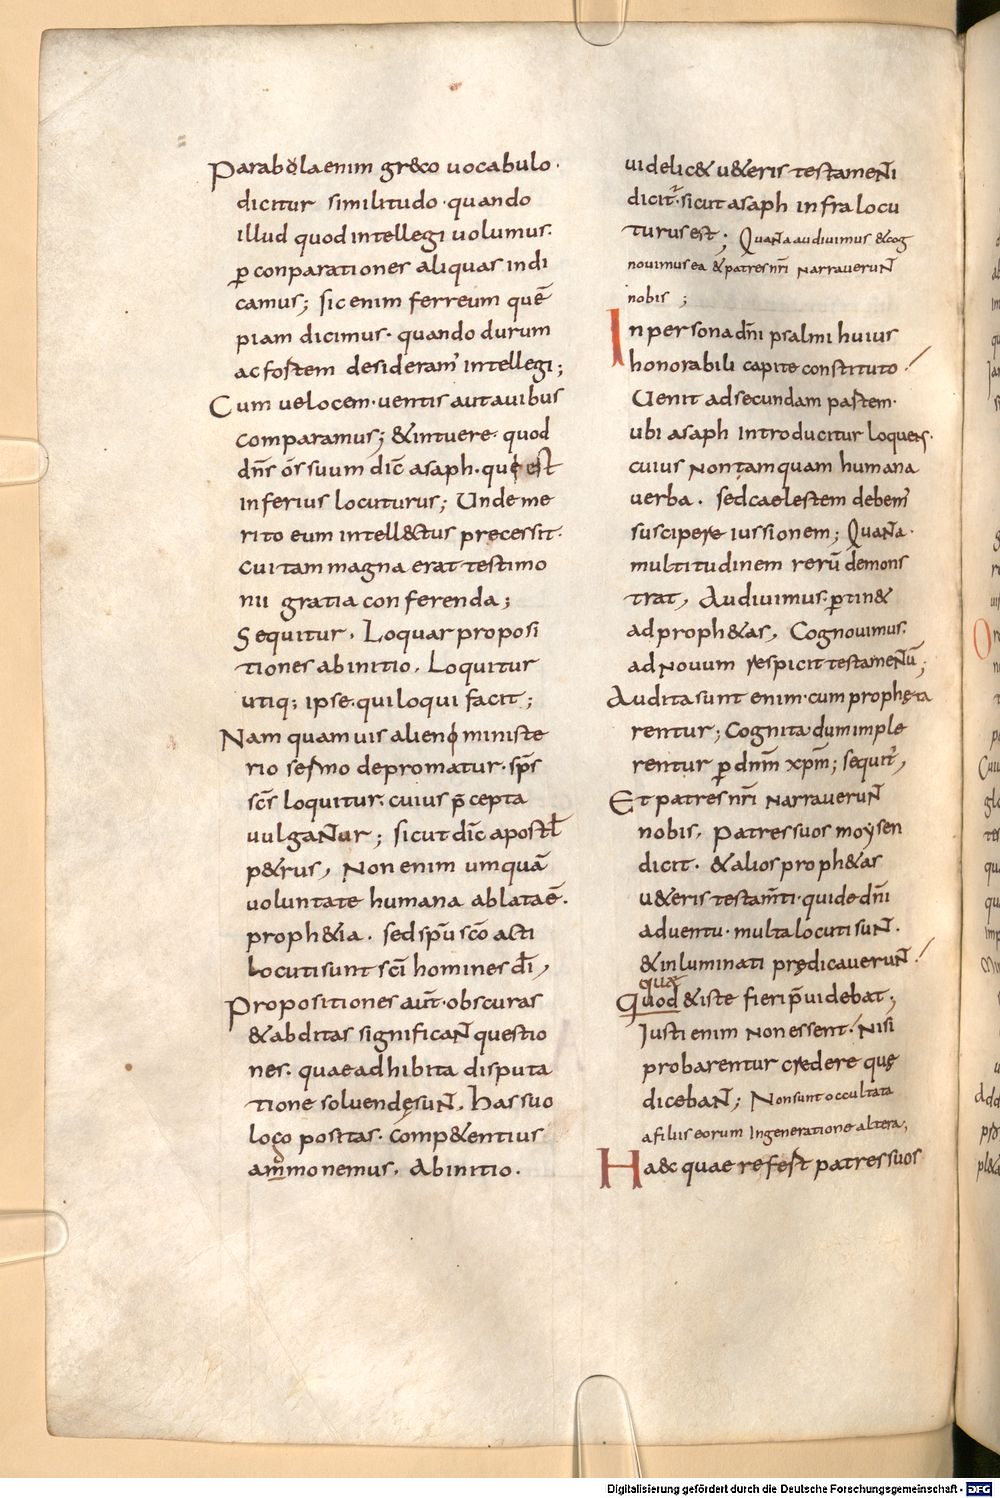 Parabola enim gr&co uocabulo·
dicitur similitudo· quando
illud quod intellegi uolumus·
ꝑ conparationer aliquas indi
camus; sic enim ferreum quē
piam dicimus· quando durum
ac fortem desideram̄ intellegi;
Cum uelocem· uentis aut auibus
comparamus; &intuere· quod
dn̄s ōs suum dic̄ asaph· quę est
inferius locuturus; Unde me
rito eum intell&ctus precessit·
cui tam magna erat testimo
nii gratia conferenda;
Sequitur· Loquar proposi
tiones ab initio· Loquitur
utiq; ipse· qui loqui facit;
Nam quamuis alieno ministe
rio sermo depromatur· sp̄s
sc̄s loquitur· cuius p̄cepta
uulgantur; sicut dic̄ apostł
p&rus, Non enim umquā
uoluntate humana ablata ē·
proph&ia· sed sp̄u sc̄o acti
locuti sunt sc̄i homines dī,
Propositiones aut̄· obscuras
& abditas significant questio
nes· quae adhibita disputa
tione soluendę sunt· has suo
loco positas· comp&entius
ammonemus· Ab initio·
uidelic& u&eris testamenti
dicit̄· sicut asaph infra locu
turus est; Quanta audiuimus &cog
nouimus ea &patres nr̄i narrauerunt
nobis ;
In persona dn̄i psalmi huius
honorabili capite constituto
Uenit ad secundam partem·
ubi asaph introducitur loquens·
cuius non tamquam humana
uerba· sed caelestem debem̄
suscipere iussionem; Quanta·
multitudinem rerū demons
trat, Audiuimus· ꝑtin&
ad proph&as, Cognouimus·
ad nouum respicit testamentū;
Audita sunt enim· cum prophęta
rentur; Cognita dum imple
rentur ꝑ dnm̄ xpm̄; sequit̄,
Et patres nr̄i narrauerunt
nobis, Patres suos moysen
dicit· & alios proph&as
u&eris testam̄ti· qui de dn̄i
aduentu· multa locuti sunt·
& inluminati prędicauerunt
quae
Quod &iste fieri p̄uidebat,
Justi enim non essent· Nisi
probarentur credere quę
dicebant; Non sunt occultata
a filiis eorum In generatione altera,
Haec quae refert patres suos
Digitalisierung gefördert durch die Deutsche Forschungsgemeinschaft · DFG